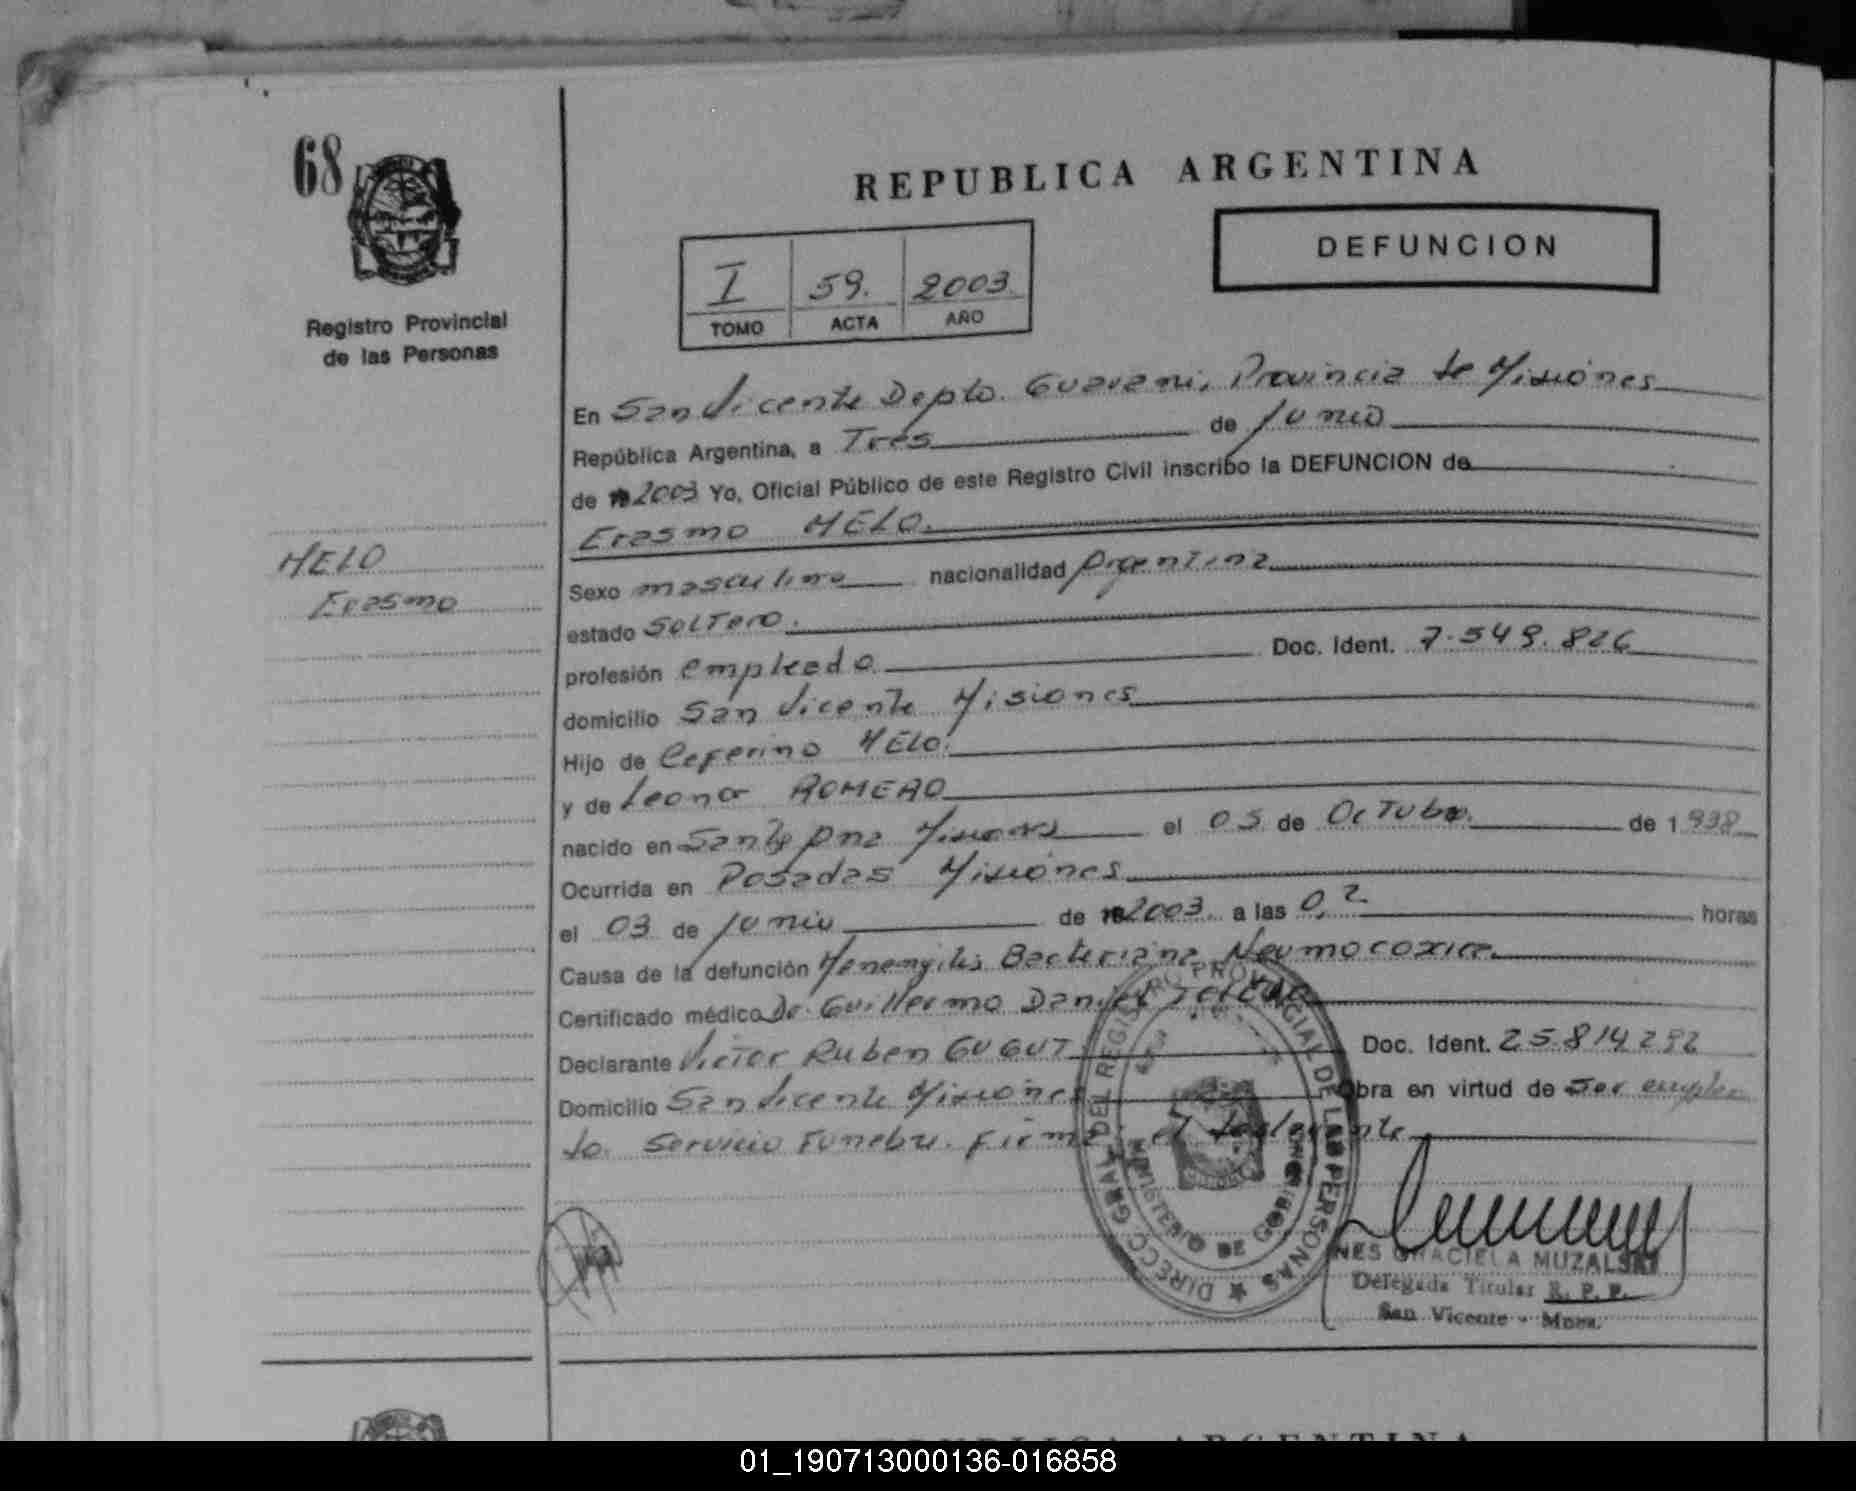 68
REPUBLICA ARGENTINA
DEFUNCION
I 59. 2003.
TOMO ACTA AÑO
Registro Provincial
de las Personas
En San Vicente Depto. Guarani, Provincia de Misiones
República Argentina, a Tres de Junio
de 2003 Yo, Oficial Público de este Registro Civil inscribo la DEFUNCION de
Erasmo MELO.
MELO
Erasmo
Sexo masculino nacionalidad Argentina
estado Soltero.
profesión empleado. Doc. Ident. 7.549.826
domicilio San Vicente Misiones
Hijo de Ceferino MELO.
y de Leonor ROMERO
nacido en Santa Ana Misiones el 05 de Octubre. de 1938
Ocurrida en Posadas Misiones
el 03 de Junio de 2003 a las 0,2 horas
Causa de la defunción Menengitis Bacteriana Neumocoxica
Certificado médico Dr. Guillermo Daniel
Declarante Victor Ruben GUGUT Doc. Ident. 25.814.292
Domicilio San Vicente Misiones Obra en virtud de ser emplea
do. Servicio Funebre. Firma el declarante
DIRECC. GRAL. DEL REGISTRO PROVINCIAL DE LAS PERSONAS
MINISTERIO DE GOBIERNO
INES GRACIELA MUZALSKI
Delegada Titular R. P. P.
San Vicente - Mnes.
REPUBLICA ARGENTINA
01_190713000136-016858